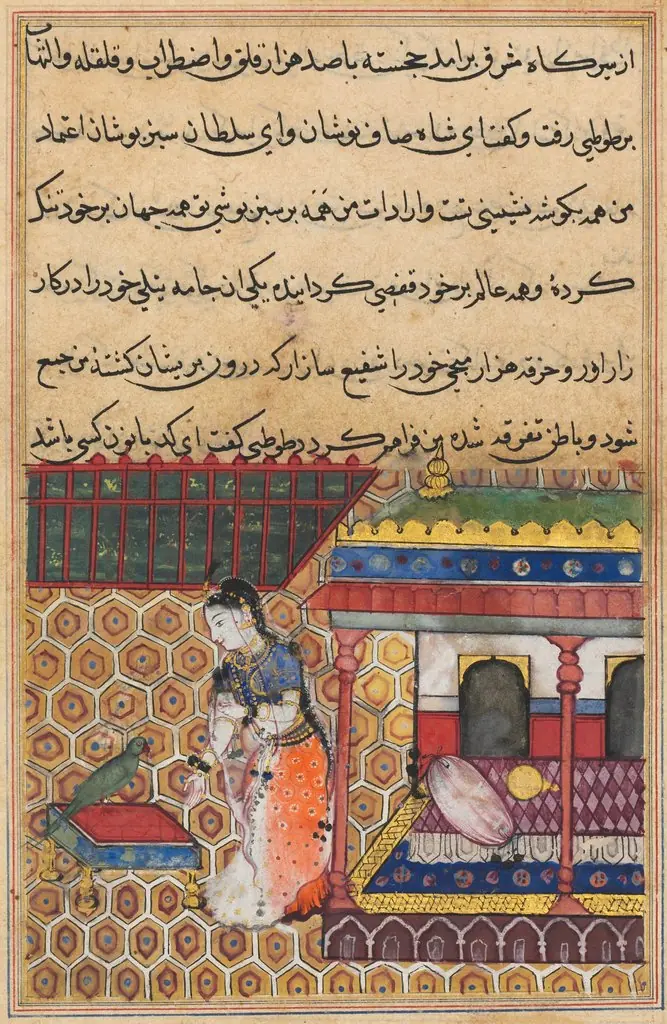 از سیر کاه شرق برامد خجسته با صد هزار قلق و اضطراب و قلقله والتهاب
بر طوطی رفت و کفت ای شاه صاف نوشان و ای سلطان سبز پوشان اعتماد
من همه بکوشه نشینی تست و ارادات من همه بر سبز پوشی تو همه جهان بر خود تنک
کرده و همه عالم بر خود قفصی کردانیده یکی ان جامه نیلی خود را در کار
زار اور و خرقه هزار میخی خود را شفیع ساز که درون پریشان کشتهٔ من جمع
شود و باطن تفرقه شده من فراهم کردد طوطی کفت ای کد بانون کسی باشد